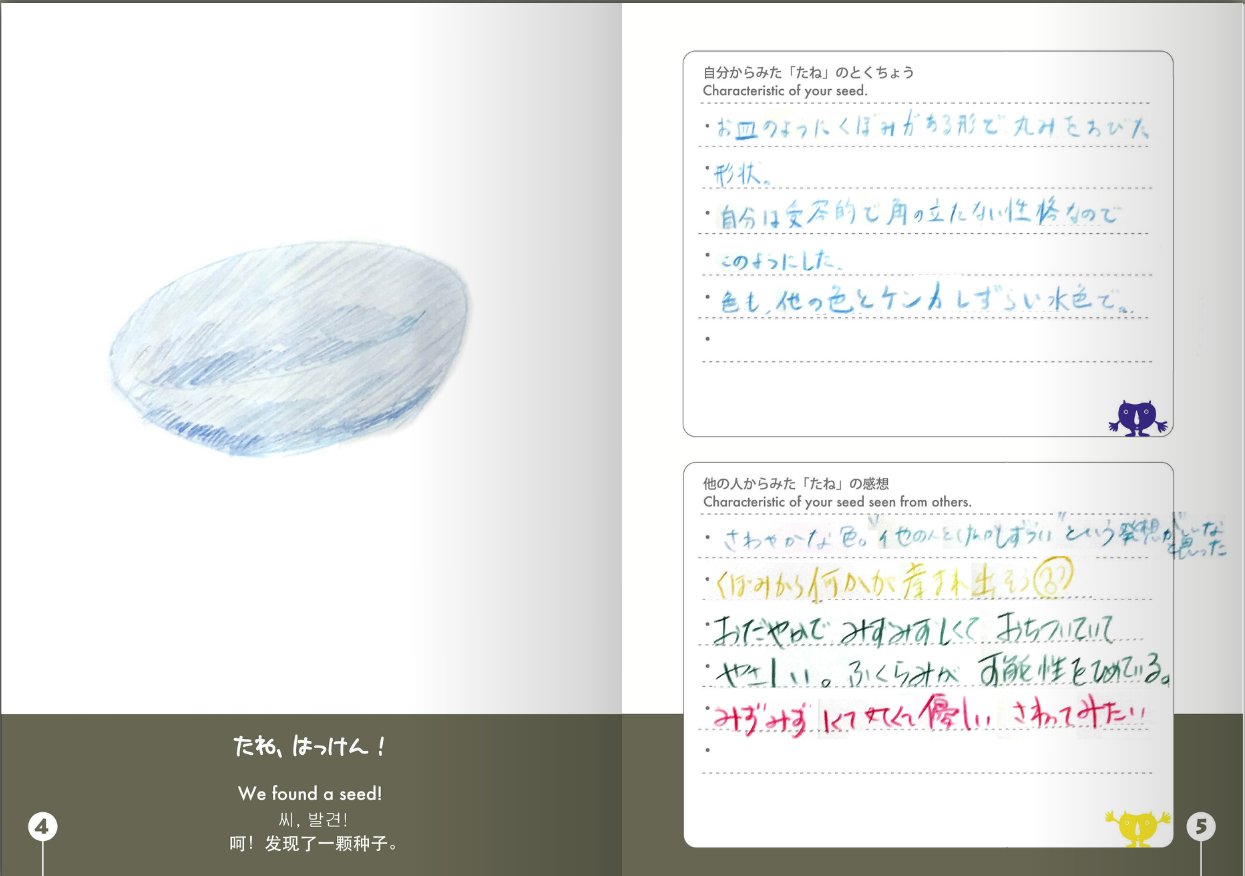 自分からみた「たね」のとくちょう
Characteristic of your seed.
・お皿のようにくぼみがある形で丸みをおびた
・形状。
・自分は受容的で角の立たない性格なので
・このようにした。
・色も、他の色とケンカしずらい水色で。
・
他の人からみた「たね」の感想
Characteristic of your seed seen from others.
・さわやかな色。"他の人とけんかしずらい"という発想がいいな
と思った
・くぼみから何かが産まれ出そう
・おだやかで みずみずしくて おちついていて
・やさしい。ふくらみが 可能性をひめている。
・みずみずしくて 優しい さわってみたい
・
たね、はっけん!
We found a seed!
씨, 발견!
呵！发现了一颗种子。
4
5